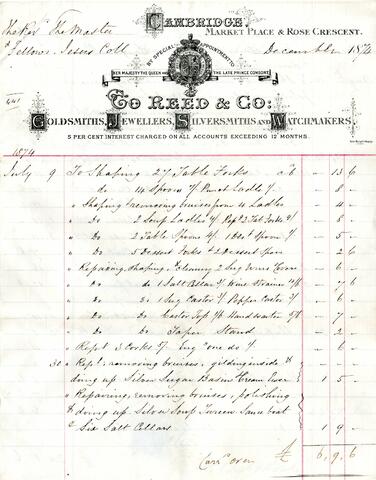 CAMBRIDGE,
MARKET PLACE & ROSE CRESCENT.
The Revd The Master
& Fellows Jesus Coll
December 1874
BY SPECIAL APPOINTMENT TO
HER MAJESTY THE QUEEN AND THE LATE PRINCE CONSORT.
To REED & Co:
GOLDSMITHS, JEWELLERS, SILVERSMITHS AND WATCHMAKERS.
5 PER CENT INTEREST CHARGED ON ALL ACCOUNTS EXCEEDING 12 MONTHS.
1874
July 9 To Shaping 27 Table Forks a 6 " 13 6
do 14 Spoons & Punch Ladle " 8 "
" Shaping & removing bruises from 4 Ladles " 4 "
" Do 2 Soup Ladles Tab Forks " 8 "
" Do 2 Table Spoons 1 Dest Spoon " 5 "
" Do 5 Dessert Forks & 2 Dessert Spoon " 2 6
" Repairing, Shaping & Cleaning 2 " 6 "
" Do do 1 Salt Cellar Wine Strainer " 7 6
" Do do Castor Pepper Castor " 6 "
" Do do Castor Top " 7 "
" Do do Taper Stand " 2 "
" Repg 3 Corks one do " 6
30 " Repg, removing bruises, gilding inside &
doing up Silver Sugar Basin & Cream Ewer 1 5 "
" Repairing, removing bruises, polishing
& doing up Silver Soup Tureen Sauce boat
& Six Salt Cellars 1 9 "
Carrd over £ 6 . 9 . 6